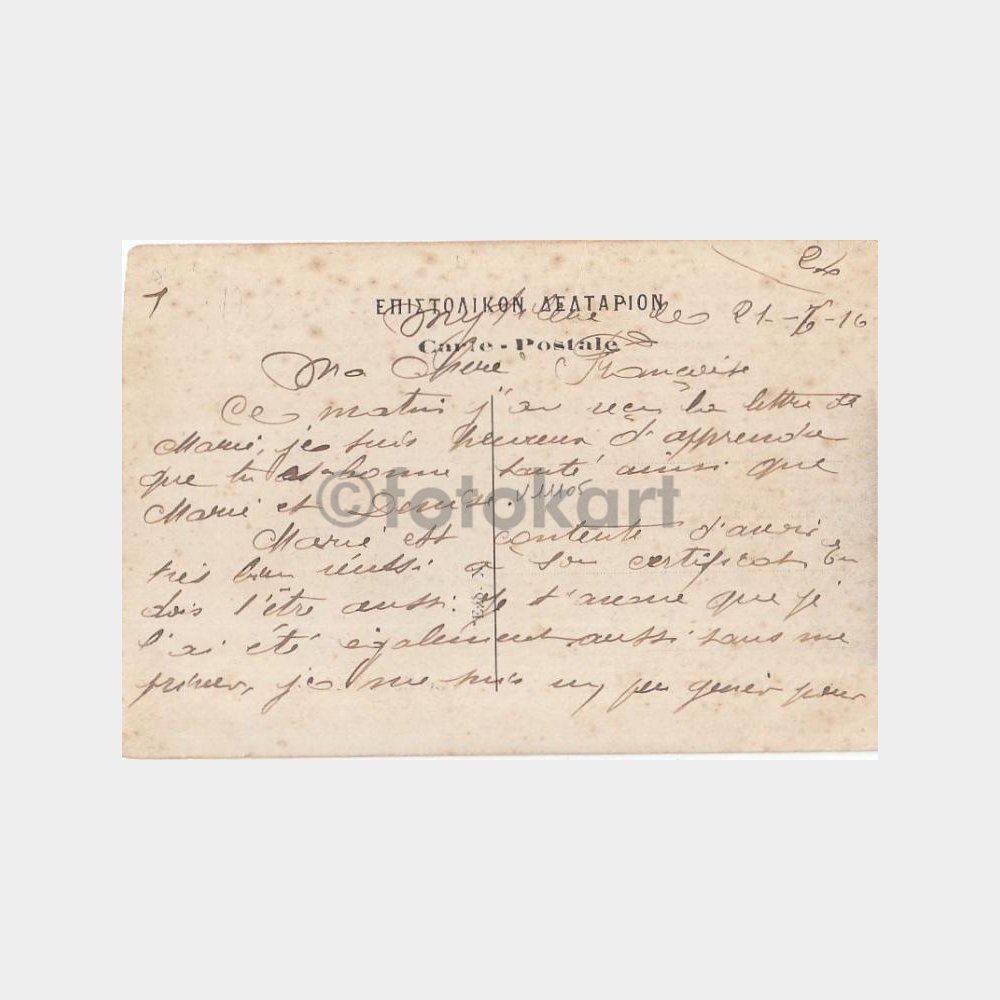 1
ΕΠΙΣΤΟΛΙΚΟΝ ΔΕΛΤΑΡΙΟΝ
le 21-7-16
Carte-Postale
Ma Chère Françoise
Ce matin j'ai reçu la lettre de
Marie, je suis heureux d'apprendre
que tu es bonne santé ainsi que
Marie et Denise.
©fotokart
Marie est contente d'avoir
très bien réussi à son certificat Tu
dois l'être aussi. Je t'avoue que je
l'ai été également aussi sans me
priver, je me suis un peu gener pour